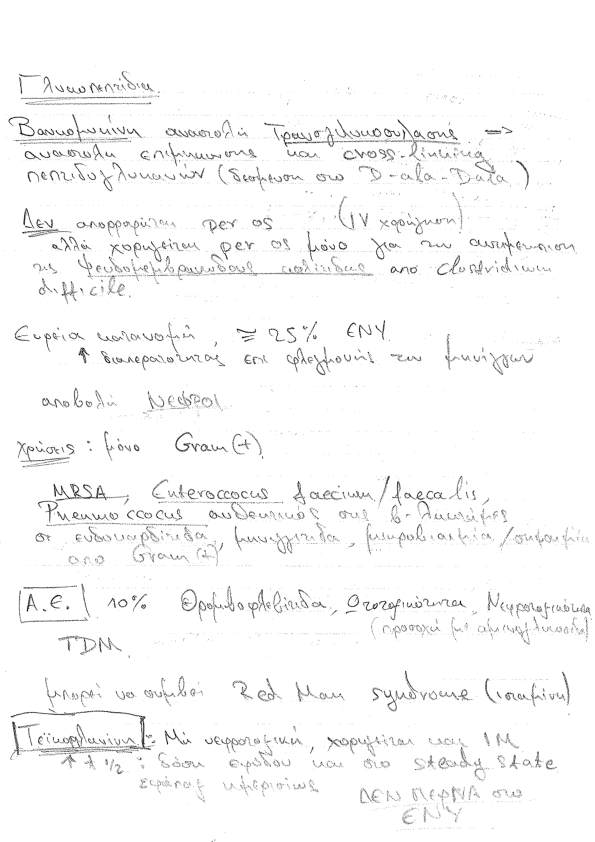 Γλυκοπεπτίδια
Βανκομυκίνη αναστολή Τρανσγλυκοσυλάσης =>
αναστολή επιμήκυνσης και cross-linking
πεπτιδογλυκανών (δέσμευση στο D-ala-Dala)
Δεν απορροφάται per os (IV χορήγηση)
αλλά χορηγείται per os μόνο για την αντιμετώπιση
της Ψευδομεμβρανώδους κολίτιδας από clostridium
difficile.
Ευρεία κατανομή, ≅ 25% ΕΝΥ
↑ διαπερατότητας επί φλεγμονής των μηνίγγων
αποβολή Νεφροί
χρήσεις: μόνο Gram(+)
MRSA, Enteroccocus faecium/faecalis,
Pneumoccocus ανθεκτικός στις β-λακτάμες
σε ενδοκαρδίτιδα, μηνιγγίτιδα, μικροβιαιμία/σηψαιμία
από Gram(+)
Α.Ε. 10% Θρομβοφλεβίτιδα, Ωτοτοξικότητα, Νεφροτοξικότητα
(προσοχή με αμινογλυκοσίδες)
TDM.
μπορεί να συμβεί Red Man syndrome (ισταμίνη)
Τεϊκοπλανίνη: Μη νεφροτοξική, χορηγείται και IM
↑ t 1/2 : δόση εφόδου και στο steady state
εφάπαξ ημερησίως ΔΕΝ ΠΕΡΝΑ στο
ΕΝΥ